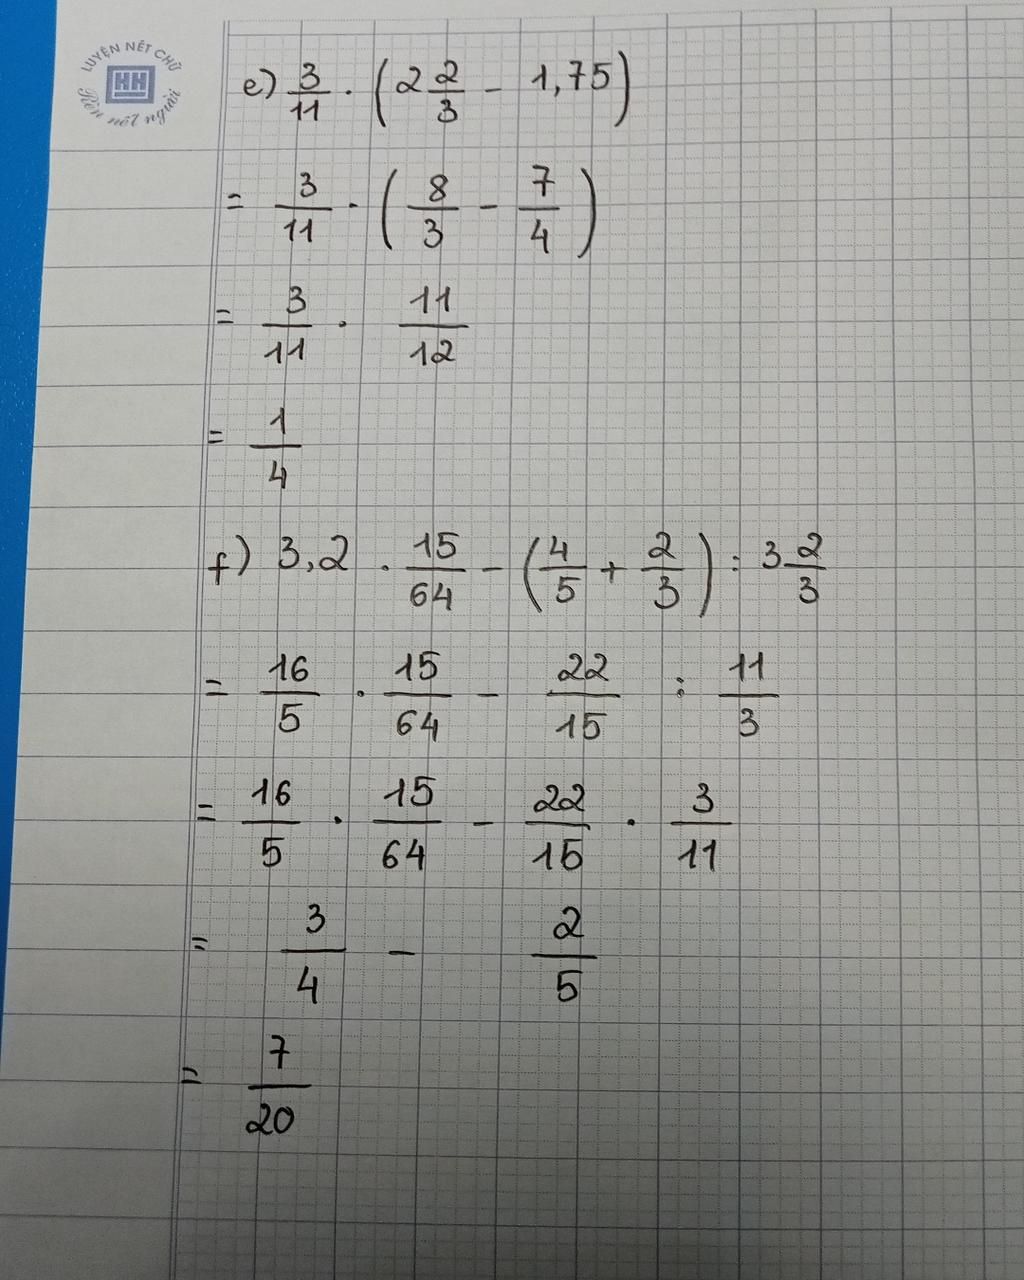 LUYỆN NÉT CHỮ
HH
Rèn nết người
e) 3/11 . (2 2/3 - 1,75)
= 3/11 . (8/3 - 7/4)
= 3/11 . 11/12
= 1/4
f) 3,2 . 15/64 - (4/5 + 2/3) : 3 2/3
= 16/5 . 15/64 - 22/15 : 11/3
= 16/5 . 15/64 - 22/15 . 3/11
= 3/4 - 2/5
= 7/20